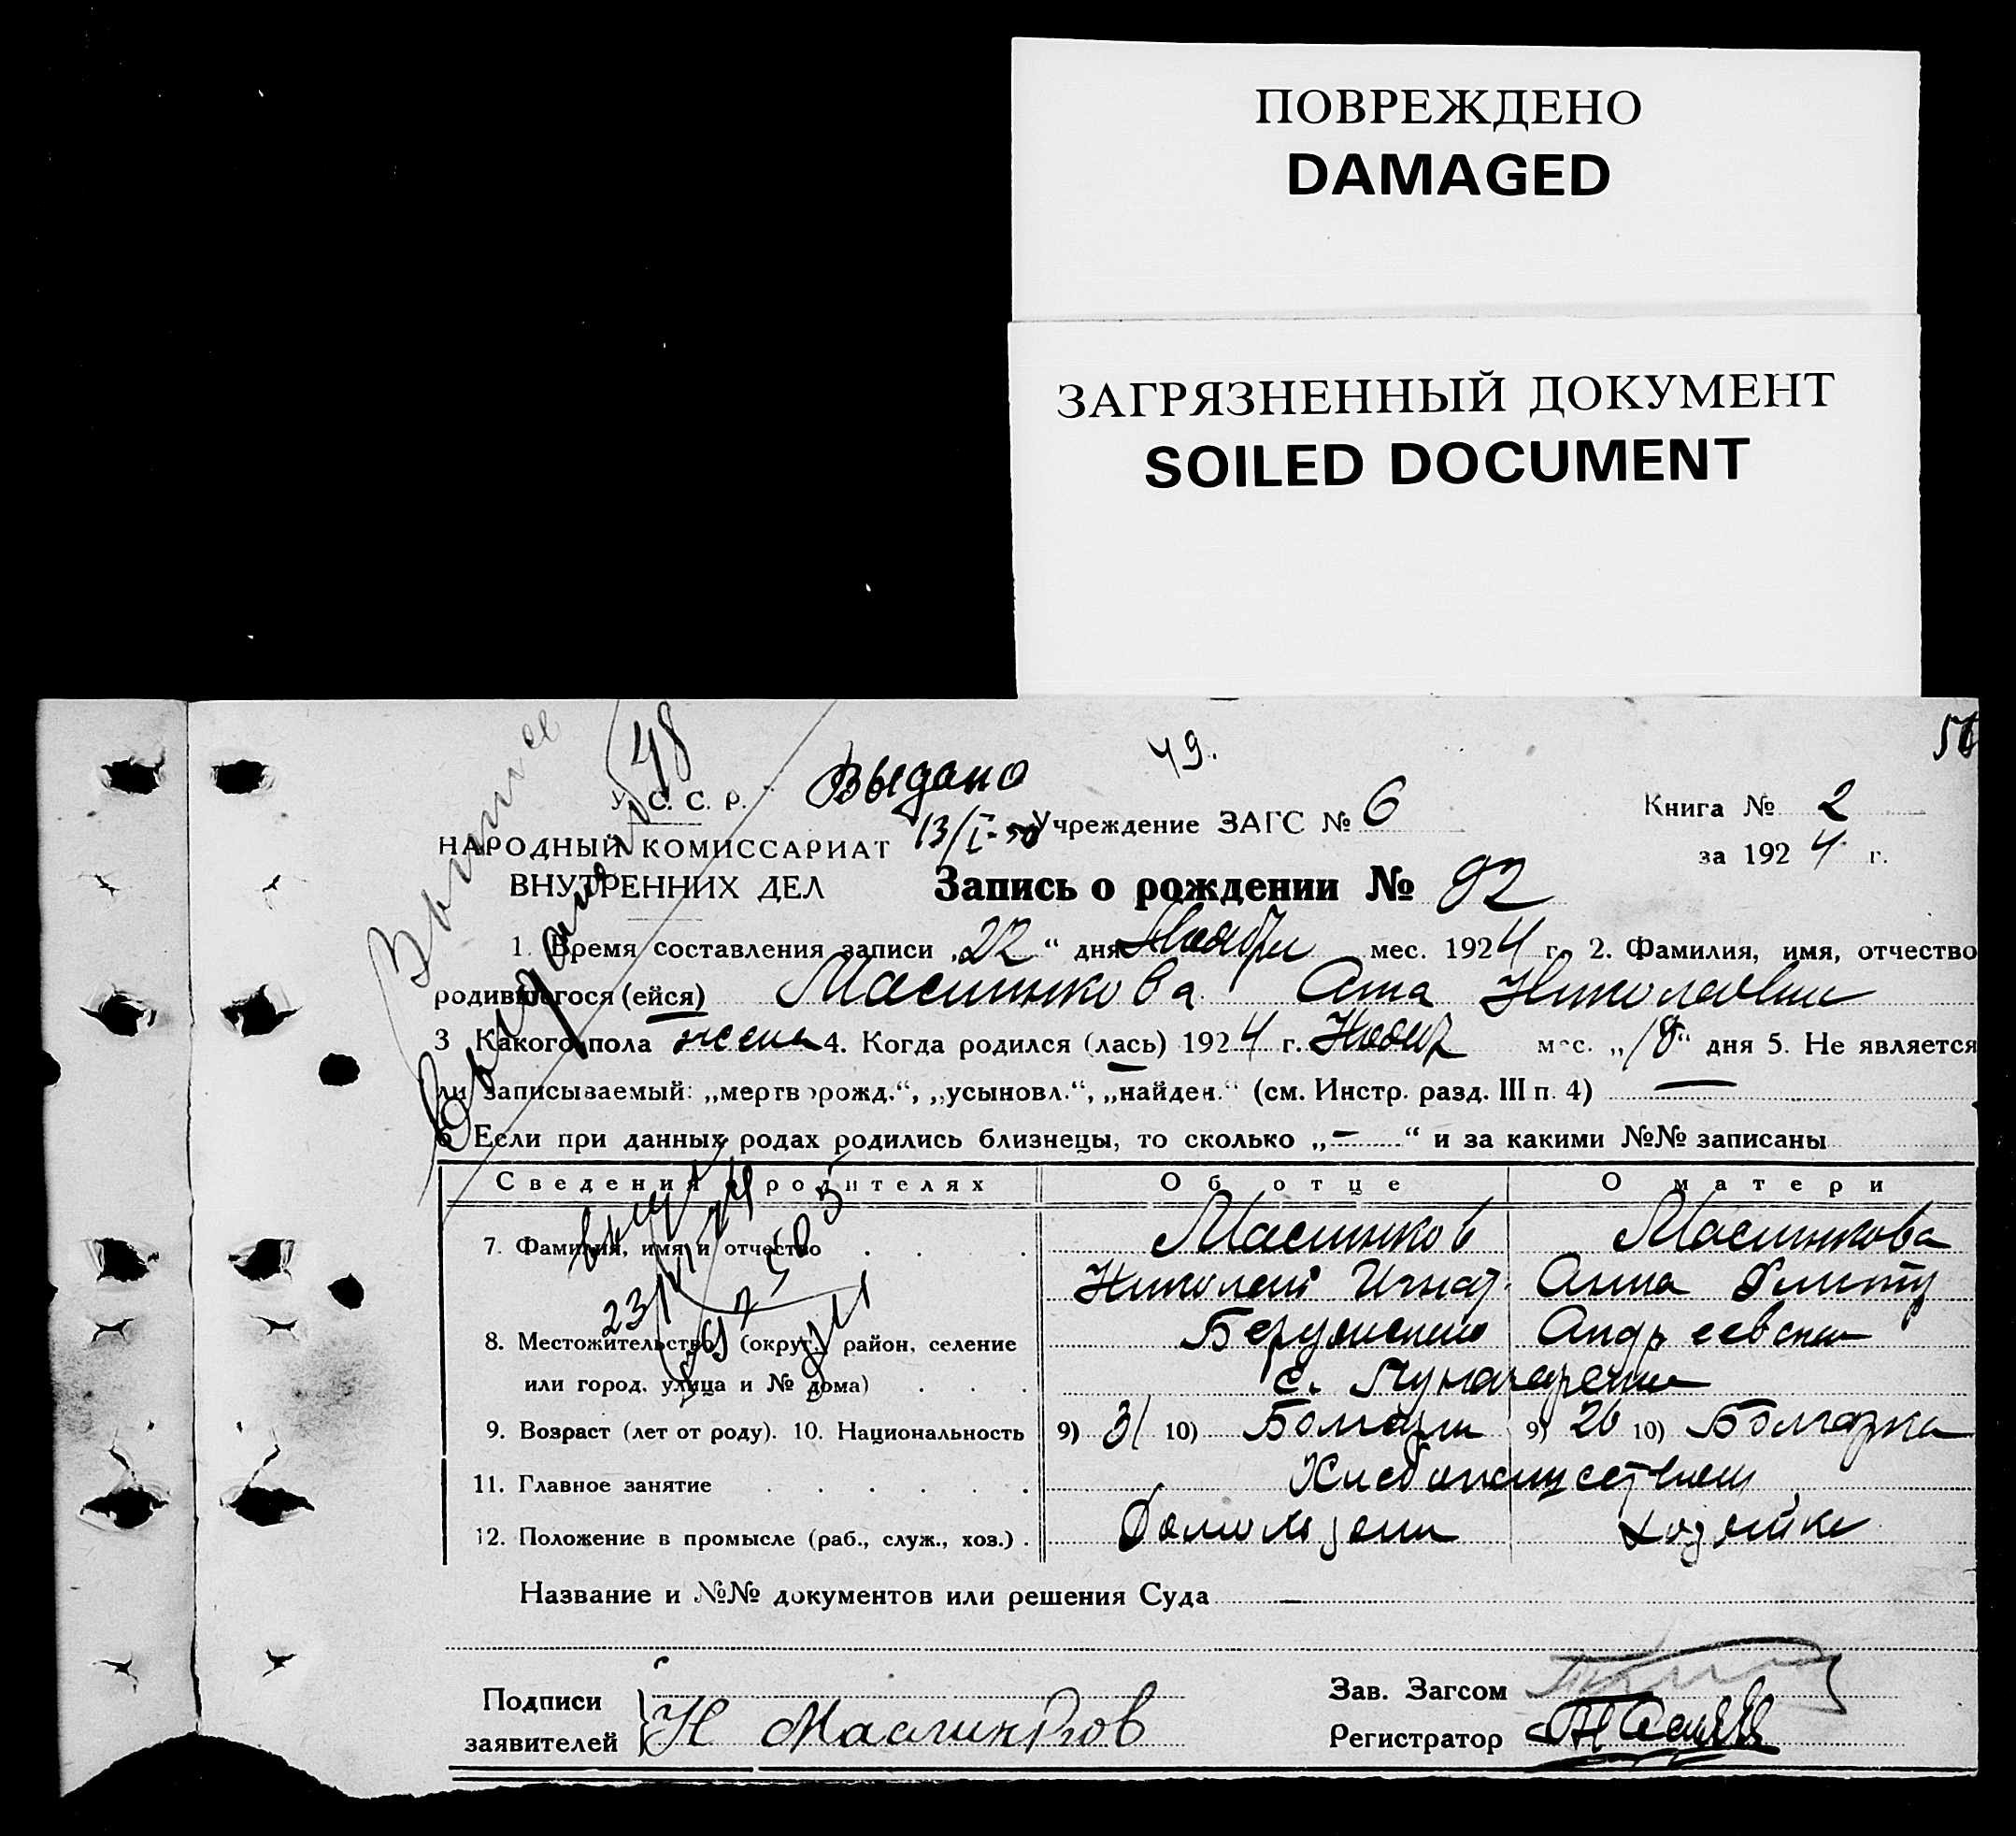 ПОВРЕЖДЕНО
DAMAGED
ЗАГРЯЗНЕННЫЙ ДОКУМЕНТ
SOILED DOCUMENT
49.
48
У. С. С. Р.
Выдано
13/I-50
Учреждение ЗАГС № 6
Книга № 2
НАРОДНЫЙ КОМИССАРИАТ
ВНУТРЕННИХ ДЕЛ
за 1924 г.
Запись о рождении № 92
1. Время составления записи „22“ дня Ноября мес. 1924 г. 2. Фамилия, имя, отчество
родившегося (ейся) Маслинкова Анна Николаевна
3 Какого пола жен 4. Когда родился (лась) 1924 г. Ноябр мес. „18“ дня 5. Не является
ли записываемый: „мертворожд.“, „усыновл.“, „найден.“ (см. Инстр. разд. III п. 4) —
6 Если при данных родах родились близнецы, то сколько „—“ и за какими №№ записаны
Сведения о родителях Об отце О матери
7. Фамилия, имя и отчество Маслинков Маслинкова
Николай Игнат. Анна
8. Местожительство (округ, район, селение Андреевска
или город, улица и № дома) с.
9. Возраст (лет от роду). 10. Национальность 9) 31 10) Болгарин 9) 26 10) Болгарка
11. Главное занятие
12. Положение в промысле (раб., служ., хоз.) Домохозяин хозяйке
Название и №№ документов или решения Суда —
Подписи
заявителей Н Маслинков
Зав. Загсом
Регистратор